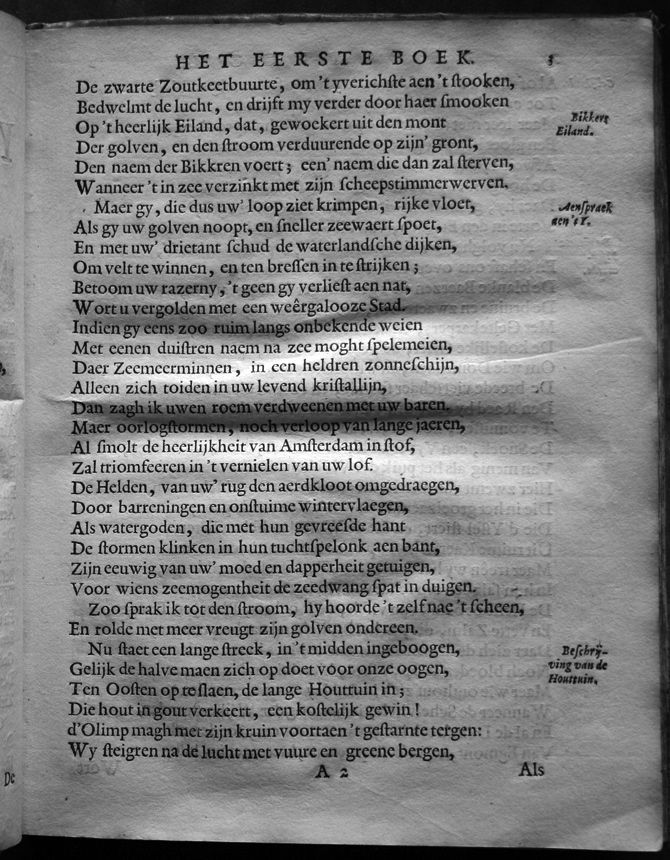 HET EERSTE BOEK. 3
De zwarte Zoutkeetbuurte, om 't yverichſte aen 't ſtooken,
Bedwelmt de lucht, en drijft my verder door haer ſmooken
Op 't heerlijk Eiland, dat, gewoekert uit den mont
Bikkers
Eiland.
Der golven, en den ſtroom verduurende op zijn' gront,
Den naem der Bikkren voert; een' naem die dan zal ſterven,
Wanneer 't in zee verzinkt met zijn ſcheepstimmerwerven.
Maer gy, die dus uw' loop ziet krimpen, rijke vloet,
Aenſpraek
aen 't Y.
Als gy uw golven noopt, en ſneller zeewaert ſpoet,
En met uw' drietant ſchud de waterlandſche dijken,
Om velt te winnen, en ten breſſen in te ſtrijken;
Betoom uw razerny, 't geen gy verlieſt aen nat,
Wort u vergolden met een weêrgalooze Stad.
Indien gy eens zoo ruim langs onbekende weien
Met eenen duiſtren naem na zee moght ſpelemeien,
Daer Zeemeerminnen, in een heldren zonneſchijn,
Alleen zich toiden in uw levend kriſtallijn,
Dan zagh ik uwen roem verdweenen met uw baren.
Maer oorlogſtormen, noch verloop van lange jaeren,
Al ſmolt de heerlijkheit van Amſterdam in ſtof,
Zal triomfeeren in 't vernielen van uw lof.
De Helden, van uw' rug den aerdkloot omgedraegen,
Door barreningen en onſtuime wintervlaegen,
Als watergoden, die met hun gevreeſde hant
De ſtormen klinken in hun tuchtſpelonk aen bant,
Zijn eeuwig van uw' moed en dapperheit getuigen,
Voor wiens zeemogentheit de zeedwang ſpat in duigen.
Zoo ſprak ik tot den ſtroom, hy hoorde 't zelf nae 't ſcheen,
En rolde met meer vreugt zijn golven ondereen.
Nu ſtaet een lange ſtreek, in 't midden ingeboogen,
Beſchrij-
ving van de
Houttuin.
Gelijk de halve maen zich op doet voor onze oogen,
Ten Ooſten op te ſlaen, de lange Houttuin in;
Die hout in gout verkeert, een koſtelijk gewin!
d'Olimp magh met zijn kruin voortaen 't geſtarnte tergen:
Wy ſteigren na de lucht met vuure en greene bergen,
A 2 Als
De